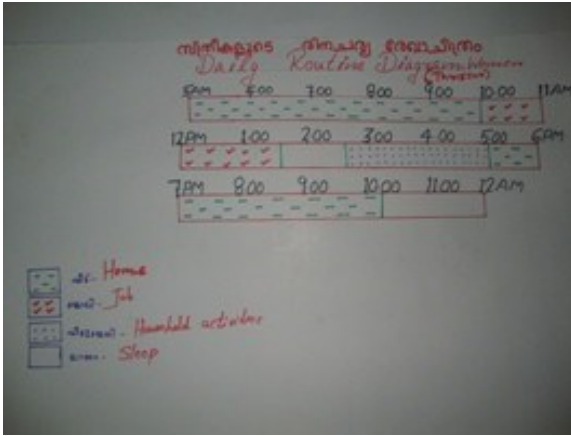 സ്ത്രീകളുടെ ദിനചര്യ രേഖാചിത്രം
Daily Routine Diagram Women
5AM 6.00 7.00 8.00 9.00 10.00 11AM
12AM 1.00 2.00 3.00 4.00 5.00 6AM
7AM 8.00 9.00 10.00 11.00 12AM
വീട് - House
ജോലി - Job
വീട്ടുജോലി - Household activities
Sleep